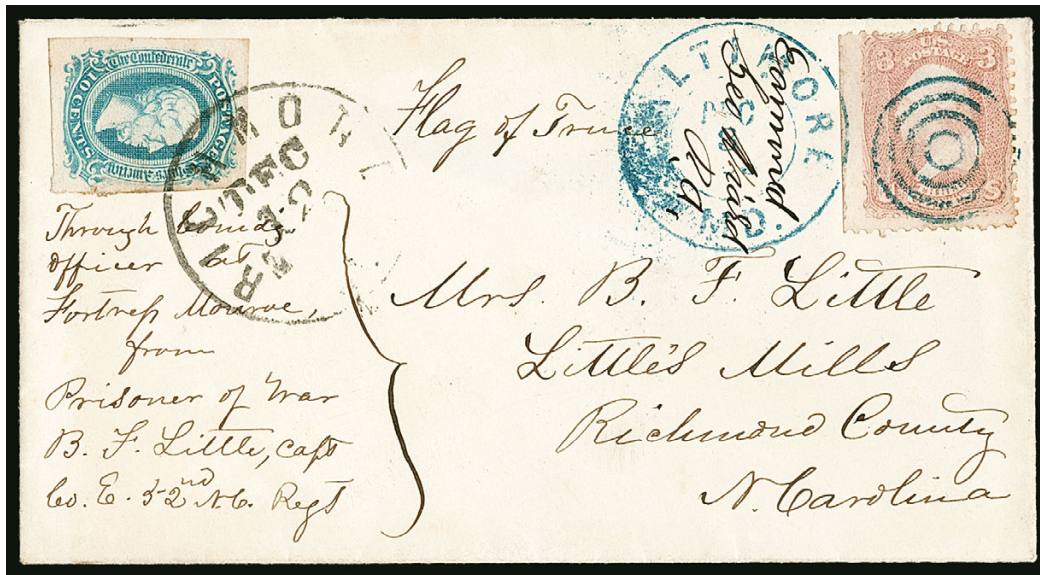 The Confederate
States of America
POSTAGE
TEN CENTS
Flag of Truce
RICHMOND
DEC
BALTIMORE
MD.
Examined
U.S. POSTAGE
3 3
Through Comdg.
officer at
Fortress Monroe,
from
Prisoner of War
B. F. Little, Capt
Co. E. 52nd N.C. Regt
Mrs. B. F. Little
Little's Mills
Richmond County
N. Carolina